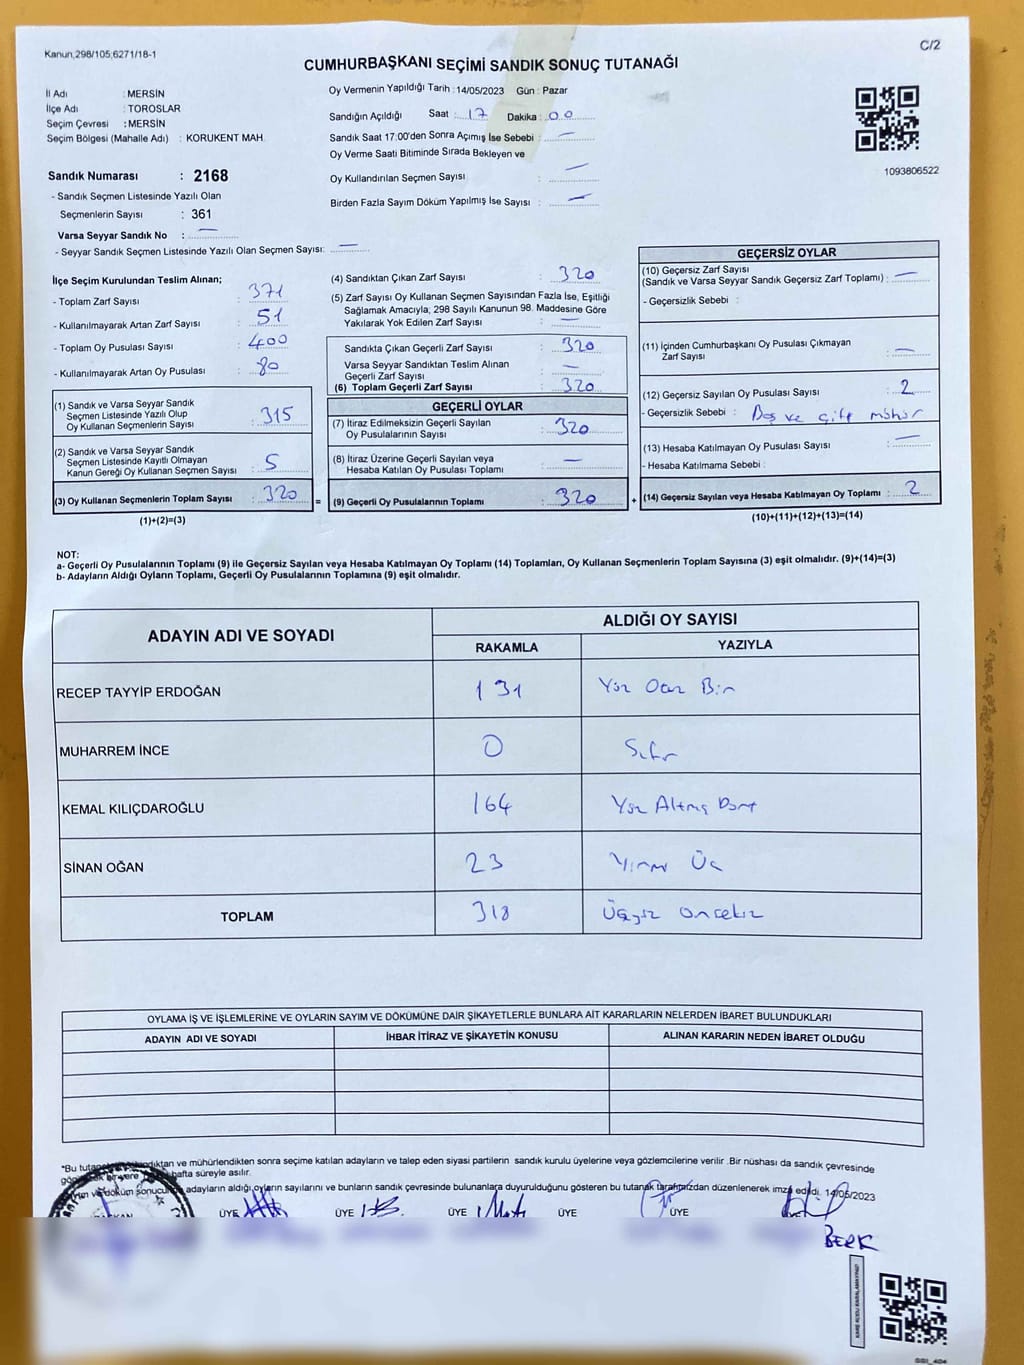 Kanun,298/105,6271/18-1
C/2
CUMHURBAŞKANI SEÇİMİ SANDIK SONUÇ TUTANAĞI
İl Adı : MERSİN
İlçe Adı : TOROSLAR
Seçim Çevresi : MERSİN
Seçim Bölgesi (Mahalle Adı) : KORUKENT MAH.
Sandık Numarası : 2168
- Sandık Seçmen Listesinde Yazılı Olan
Seçmenlerin Sayısı : 361
Varsa Seyyar Sandık No : —
- Seyyar Sandık Seçmen Listesinde Yazılı Olan Seçmen Sayısı: —
Oy Vermenin Yapıldığı Tarih : 14/05/2023 Gün : Pazar
Sandığın Açıldığı Saat : 17 Dakika : 00
Sandık Saat 17:00'den Sonra Açımış İse Sebebi : —
Oy Verme Saati Bitiminde Sırada Bekleyen ve
Oy Kullandırılan Seçmen Sayısı : —
Birden Fazla Sayım Döküm Yapılmış İse Sayısı : —
1093806522
İlçe Seçim Kurulundan Teslim Alınan;
- Toplam Zarf Sayısı : 371
- Kullanılmayarak Artan Zarf Sayısı : 51
- Toplam Oy Pusulası Sayısı : 400
- Kullanılmayarak Artan Oy Pusulası : 80
(1) Sandık ve Varsa Seyyar Sandık
Seçmen Listesinde Yazılı Olup
Oy Kullanan Seçmenlerin Sayısı : 315
(2) Sandık ve Varsa Seyyar Sandık
Seçmen Listesinde Kayıtlı Olmayan
Kanun Gereği Oy Kullanan Seçmen Sayısı : 5
(3) Oy Kullanan Seçmenlerin Toplam Sayısı : 320 =
(1)+(2)=(3)
(4) Sandıktan Çıkan Zarf Sayısı : 320
(5) Zarf Sayısı Oy Kullanan Seçmen Sayısından Fazla İse, Eşitliği
Sağlamak Amacıyla; 298 Sayılı Kanunun 98. Maddesine Göre
Yakılarak Yok Edilen Zarf Sayısı : —
Sandıkta Çıkan Geçerli Zarf Sayısı : 320
Varsa Seyyar Sandıktan Teslim Alınan
Geçerli Zarf Sayısı : —
(6) Toplam Geçerli Zarf Sayısı : 320
GEÇERLİ OYLAR
(7) İtiraz Edilmeksizin Geçerli Sayılan
Oy Pusulalarının Sayısı : 320
(8) İtiraz Üzerine Geçerli Sayılan veya
Hesaba Katılan Oy Pusulası Toplamı : —
(9) Geçerli Oy Pusulalarının Toplamı : 320 +
GEÇERSİZ OYLAR
(10) Geçersiz Zarf Sayısı
(Sandık ve Varsa Seyyar Sandık Geçersiz Zarf Toplamı) : —
- Geçersizlik Sebebi :
(11) İçinden Cumhurbaşkanı Oy Pusulası Çıkmayan
Zarf Sayısı : —
(12) Geçersiz Sayılan Oy Pusulası Sayısı : 2
- Geçersizlik Sebebi : Boş ve çift mühür
(13) Hesaba Katılmayan Oy Pusulası Sayısı : —
- Hesaba Katılmama Sebebi :
(14) Geçersiz Sayılan veya Hesaba Katılmayan Oy Toplamı : 2
(10)+(11)+(12)+(13)=(14)
NOT:
a- Geçerli Oy Pusulalarının Toplamı (9) ile Geçersiz Sayılan veya Hesaba Katılmayan Oy Toplamı (14) Toplamları, Oy Kullanan Seçmenlerin Toplam Sayısına (3) eşit olmalıdır. (9)+(14)=(3)
b- Adayların Aldığı Oyların Toplamı, Geçerli Oy Pusulalarının Toplamına (9) eşit olmalıdır.
ADAYIN ADI VE SOYADI
ALDIĞI OY SAYISI
RAKAMLA YAZIYLA
RECEP TAYYİP ERDOĞAN 131 Yüz Otuz Bir
MUHARREM İNCE 0 Sıfır
KEMAL KILIÇDAROĞLU 164 Yüz Altmış Dört
SİNAN OĞAN 23 Yirmi Üç
TOPLAM 318 Üçyüz onsekiz
OYLAMA İŞ VE İŞLEMLERİNE VE OYLARIN SAYIM VE DÖKÜMÜNE DAİR ŞİKAYETLERLE BUNLARA AİT KARARLARIN NELERDEN İBARET BULUNDUKLARI
ADAYIN ADI VE SOYADI İHBAR İTİRAZ VE ŞİKAYETİN KONUSU ALINAN KARARIN NEDEN İBARET OLDUĞU
*Bu tutanak ve mühürlendikten sonra seçime katılan adayların ve talep eden siyasi partilerin sandık kurulu üyelerine veya gözlemcilerine verilir .Bir nüshası da sandık çevresinde
hafta süreyle asılır.
ve döküm sonucunda adayların aldığı oyların sayılarını ve bunların sandık çevresinde bulunanlara duyurulduğunu gösteren bu tutanak tarafımızdan düzenlenerek imza edildi. 14/05/2023
ÜYE ÜYE ÜYE ÜYE ÜYE
BERK